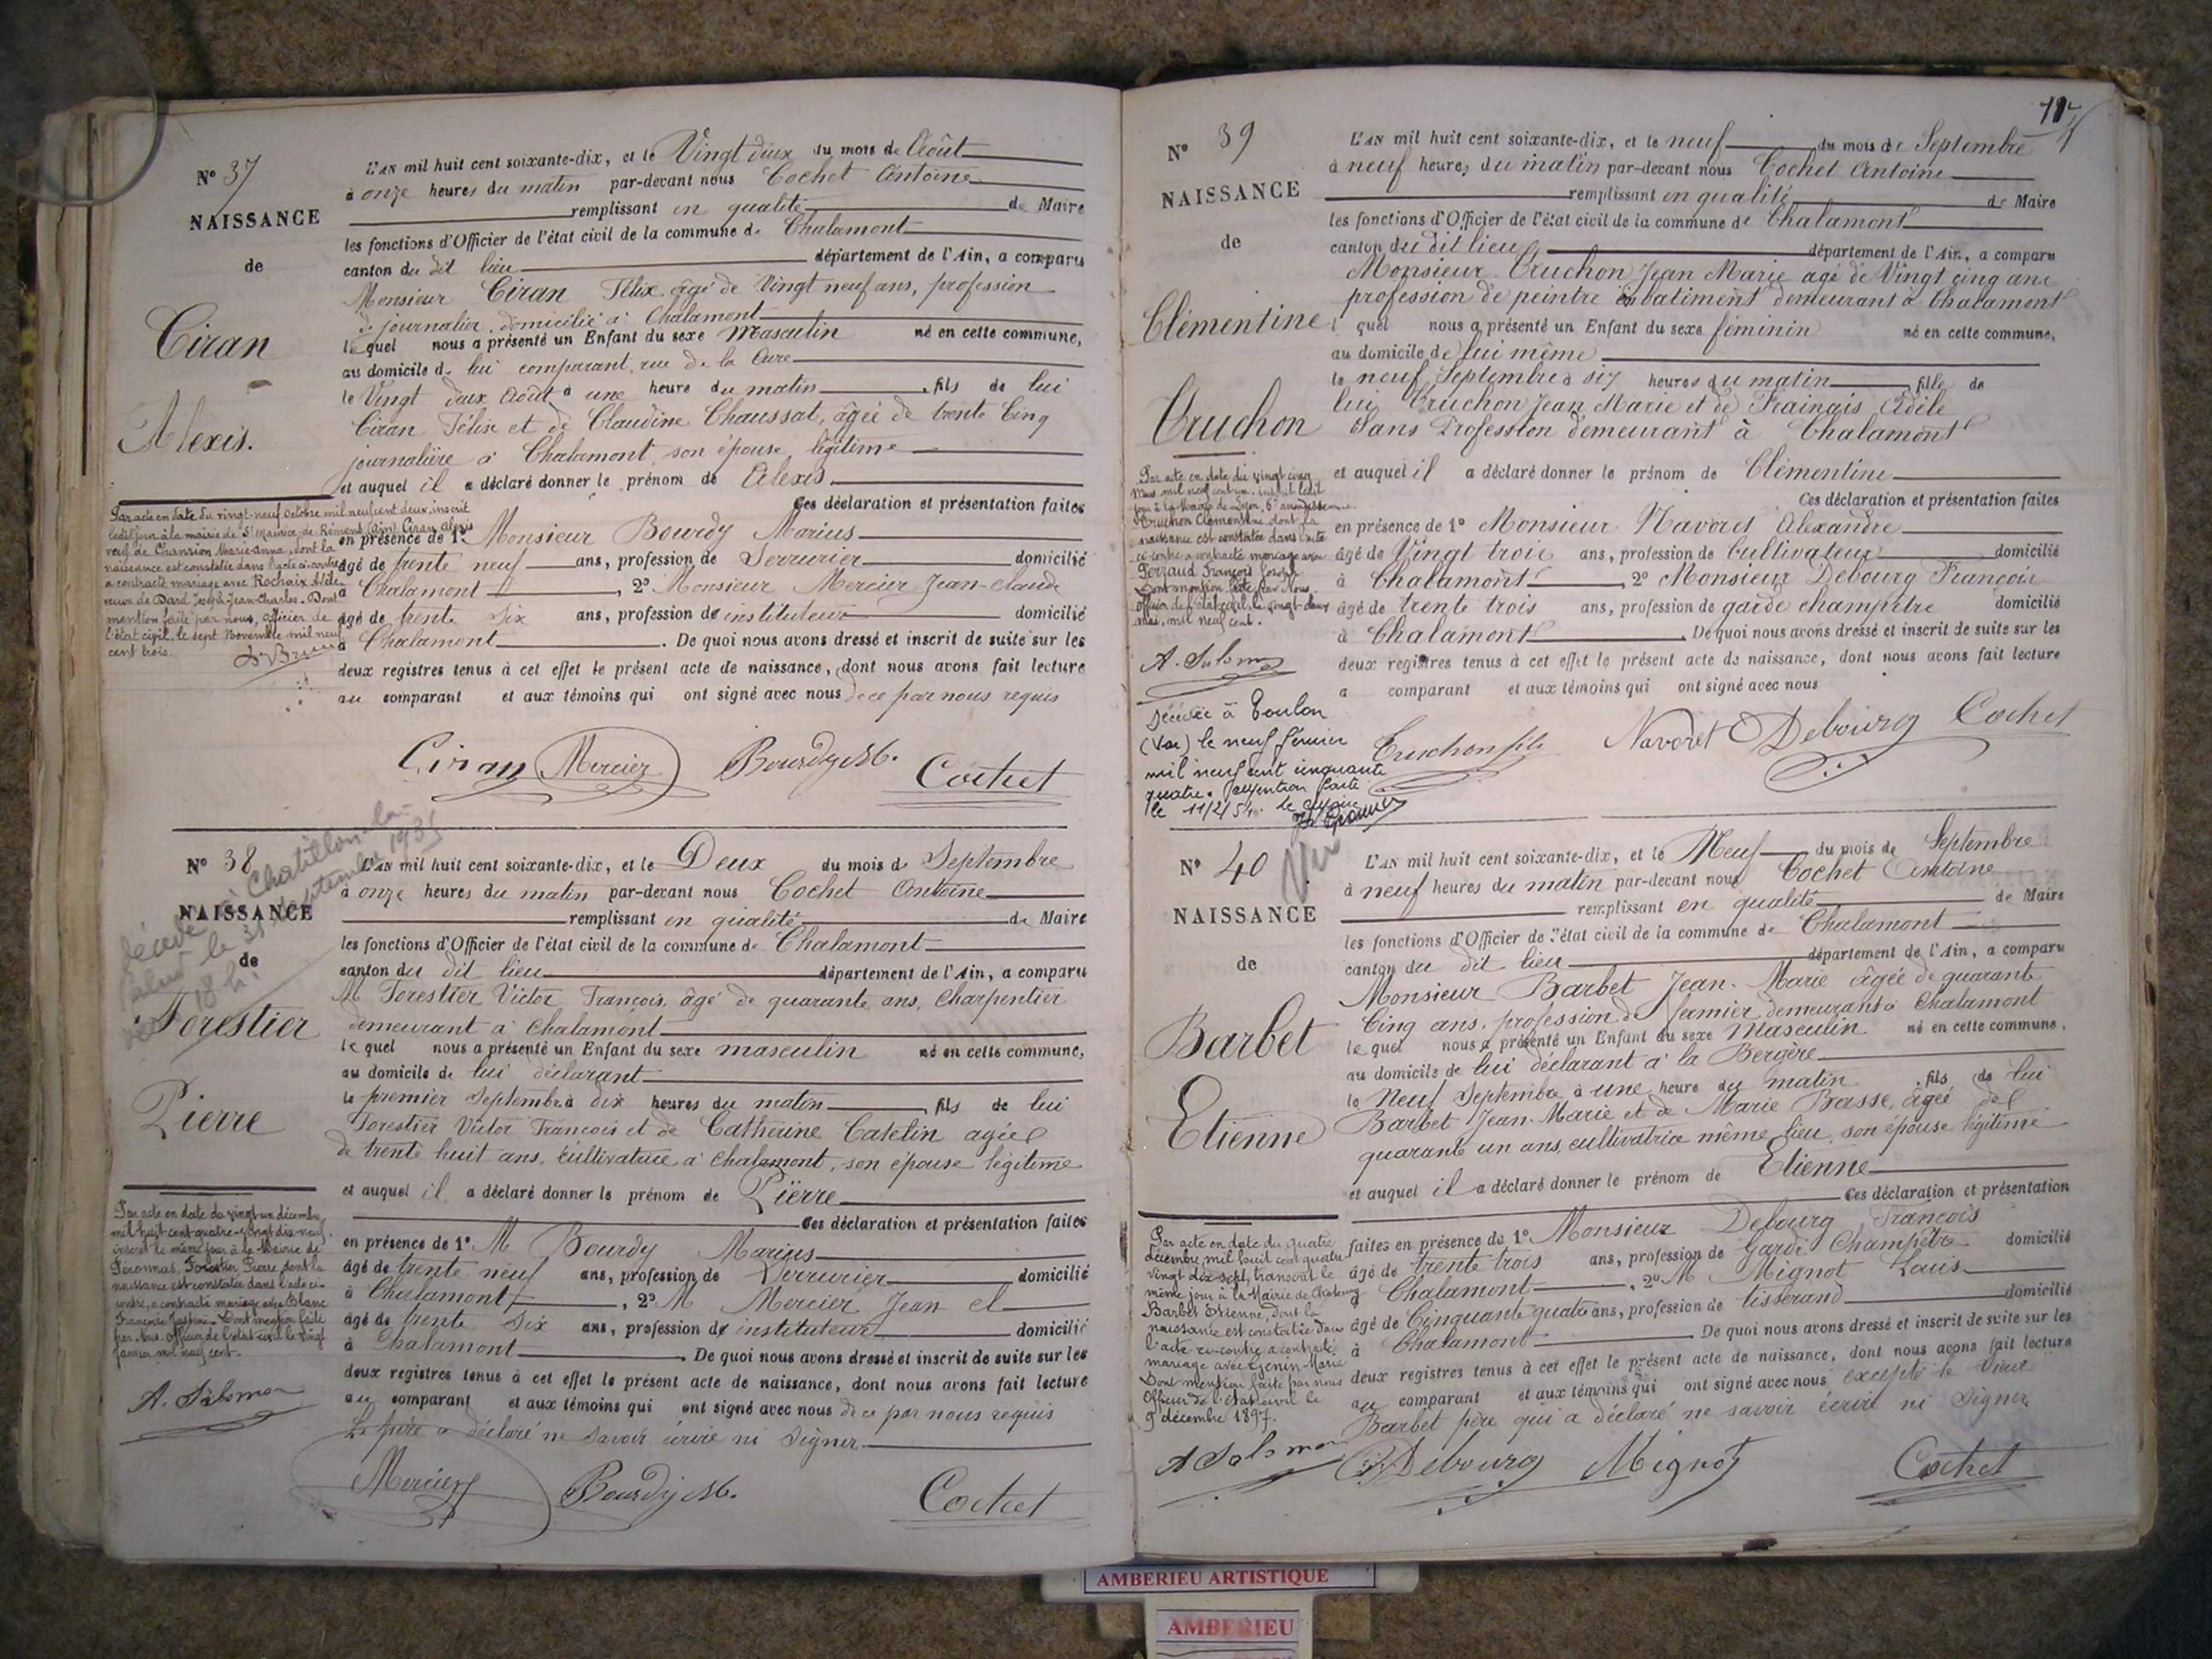 N° 37
NAISSANCE
de
Ciran
Alexis.
L'AN mil huit cent soixante-dix, et le Vingt deux du mois de Août
à onze heures du matin par-devant nous Cochet Antoine
remplissant en qualité de Maire
les fonctions d'Officier de l'état civil de la commune de Chalamont
canton du dit lieu département de l'Ain, a comparu
Monsieur Ciran Félix âgé de Vingt neuf ans, profession
de journalier, domicilié à Chalamont
lequel nous a présenté un Enfant du sexe Masculin né en cette commune,
au domicile de lui comparant, rue de la Cure
le Vingt deux Août à une heure du matin fils de lui
Ciran Félix et de Claudine Chaussat, âgée de trente Cinq
journalière à Chalamont, son épouse légitime
et auquel il a déclaré donner le prénom de Alexis
Ces déclaration et présentation faites
en présence de 1° Monsieur Bourdy Marius
âgé de trente neuf ans, profession de Serrurier domicilié
à Chalamont, 2° Monsieur Mercier Jean-Claude
âgé de trente six ans, profession de instituteur domicilié
à Chalamont. De quoi nous avons dressé et inscrit de suite sur les
deux registres tenus à cet effet le présent acte de naissance, dont nous avons fait lecture
au comparant et aux témoins qui ont signé avec nous de ce par nous requis
Par acte en date du vingt-neuf octobre mil neuf cent deux, inscrit
ledit jour à la mairie de St Maurice-de-Rémens (Ain) Ciran Alexis
veuf de Chansion Marie-Anna, dont la
naissance est constatée dans l'acte ci-contre
a contracté mariage avec Rochaix
veuve de Bard Joseph Jean-Charles. Dont
mention faite par nous, officier de
l'état civil, le sept Novembre mil neuf
cent trois.
Ciran Mercier Bourdy M. Cochet
N° 38
NAISSANCE
de
Forestier
Pierre
décédé à Chatillon-la-
le 31 septembre
18 h.
L'AN mil huit cent soixante-dix, et le Deux du mois de Septembre
à onze heures du matin par-devant nous Cochet Antoine
remplissant en qualité de Maire
les fonctions d'Officier de l'état civil de la commune de Chalamont
canton du dit lieu département de l'Ain, a comparu
M Forestier Victor François, âgé de quarante ans, Charpentier
demeurant à Chalamont
lequel nous a présenté un Enfant du sexe masculin né en cette commune,
au domicile de lui déclarant
le premier Septembre à dix heures du matin, fils de lui
Forestier Victor François et de Catherine Catelin agée
de trente huit ans, cultivatrice à Chalamont, son épouse légitime
et auquel il a déclaré donner le prénom de Pierre
Ces déclaration et présentation faites
en présence de 1° M Bourdy Marius
âgé de trente neuf ans, profession de Serrurier domicilié
à Chalamont, 2° M Mercier Jean Cl
âgé de trente six ans, profession de instituteur domicilié
à Chalamont. De quoi nous avons dressé et inscrit de suite sur les
deux registres tenus à cet effet le présent acte de naissance, dont nous avons fait lecture
au comparant et aux témoins qui ont signé avec nous de ce par nous requis
Le père a déclaré ne savoir écrire ni signer
Par acte en date du vingt-un décembre
mil huit cent quatre-vingt dix-neuf
inscrit le même jour à la Mairie de
Péronnas, Forestier Pierre dont la
naissance est constatée dans l'acte ci-
contre, a contracté mariage avec Blanc
Dont mention faite
par Nous, Officier de l'état civil le vingt
janvier mil neuf cent.
A. Salomon
Mercier Bourdy M. Cochet
N° 39
NAISSANCE
de
Clémentine
Cruchon
L'AN mil huit cent soixante-dix, et le neuf du mois de Septembre
à neuf heures du matin par-devant nous Cochet Antoine
remplissant en qualité de Maire
les fonctions d'Officier de l'état civil de la commune de Chalamont
canton du dit lieu département de l'Ain, a comparu
Monsieur Cruchon Jean Marie agé de Vingt cinq ans
profession de peintre en batiment demeurant à Chalamont
lequel nous a présenté un Enfant du sexe féminin né en cette commune,
au domicile de lui même
le neuf Septembre à six heures du matin, fille de
lui Cruchon Jean Marie et de Frainais Adèle
Sans Profession demeurant à Chalamont
et auquel il a déclaré donner le prénom de Clémentine
Ces déclaration et présentation faites
en présence de 1° Monsieur Navoret Alexandre
âgé de Vingt trois ans, profession de Cultivateur domicilié
à Chalamont, 2° Monsieur Debourg François
âgé de trente trois ans, profession de garde champêtre domicilié
à Chalamont. De quoi nous avons dressé et inscrit de suite sur les
deux registres tenus à cet effet le présent acte de naissance, dont nous avons fait lecture
a comparant et aux témoins qui ont signé avec nous
Par acte en date du vingt cinq
Cruchon Clémentine dont la
naissance est constatée dans l'acte
ci-contre a contracté mariage avec
Perraud François Joseph
Dont mention faite par Nous
officier de l'état civil, le vingt-deux
mai, mil neuf cent.
A. Salomon
Décédée à Toulon
(Var) le neuf février
mil neuf cent cinquante
quatre. Mention faite
le 11/2/54.
Cruchon fils Navoret Debourg Cochet
N° 40
NAISSANCE
de
Barbet
Etienne
L'AN mil huit cent soixante-dix, et le Neuf du mois de Septembre
à neuf heures du matin par-devant nous Cochet Antoine
remplissant en qualité de Maire
les fonctions d'Officier de l'état civil de la commune de Chalamont
canton du dit lieu département de l'Ain, a comparu
Monsieur Barbet Jean-Marie âgée de quarante
Cinq ans, profession de fermier demeurant à Chalamont
lequel nous a présenté un Enfant du sexe Masculin né en cette commune.
au domicile de lui déclarant à la Bergère
le Neuf Septembre à une heure du matin, fils de lui
Barbet Jean-Marie et de Marie Basse, âgée de
quarante un ans, cultivatrice même lieu, son épouse légitime
et auquel il a déclaré donner le prénom de Etienne
Ces déclaration et présentation
faites en présence de 1° Monsieur Debourg François
âgé de trente trois ans, profession de Garde Champêtre domicilié
Chalamont, 2° M Mignot Louis
âgé de Cinquante quatre ans, profession de tisserand domicilié
à Chalamont De quoi nous avons dressé et inscrit de suite sur les
deux registres tenus à cet effet le présent acte de naissance, dont nous avons fait lecture
au comparant et aux témoins qui ont signé avec nous excepté le Sieur
Barbet père qui a déclaré ne savoir écrire ni signer
Par acte en date du quatre
décembre, mil huit cent quatre
vingt dix sept, transcrit le
même jour à la Mairie de
Barbet Etienne, dont la
naissance est constatée dans
l'acte ci-contre a contracté
mariage avec Genin Marie
Dont mention faite par nous
Officier de l'état civil le
9 décembre 1897.
A Salomon
Debourg Mignot Cochet
AMBERIEU ARTISTIQUE
AMBERIEU